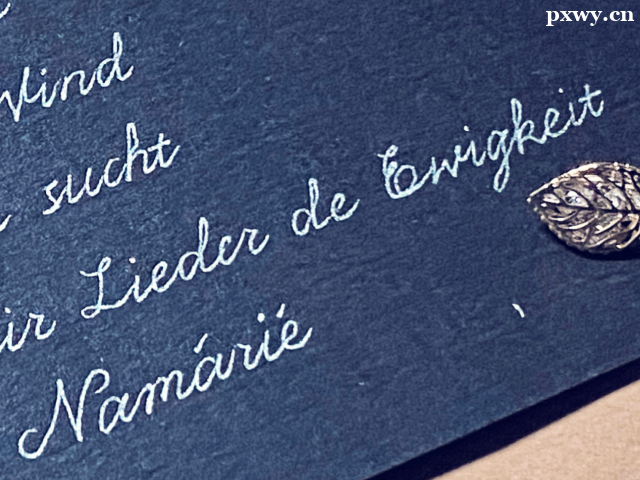 pxwy.cn
Wind
sucht
ir Lieder de Ewigkeit
Namárië